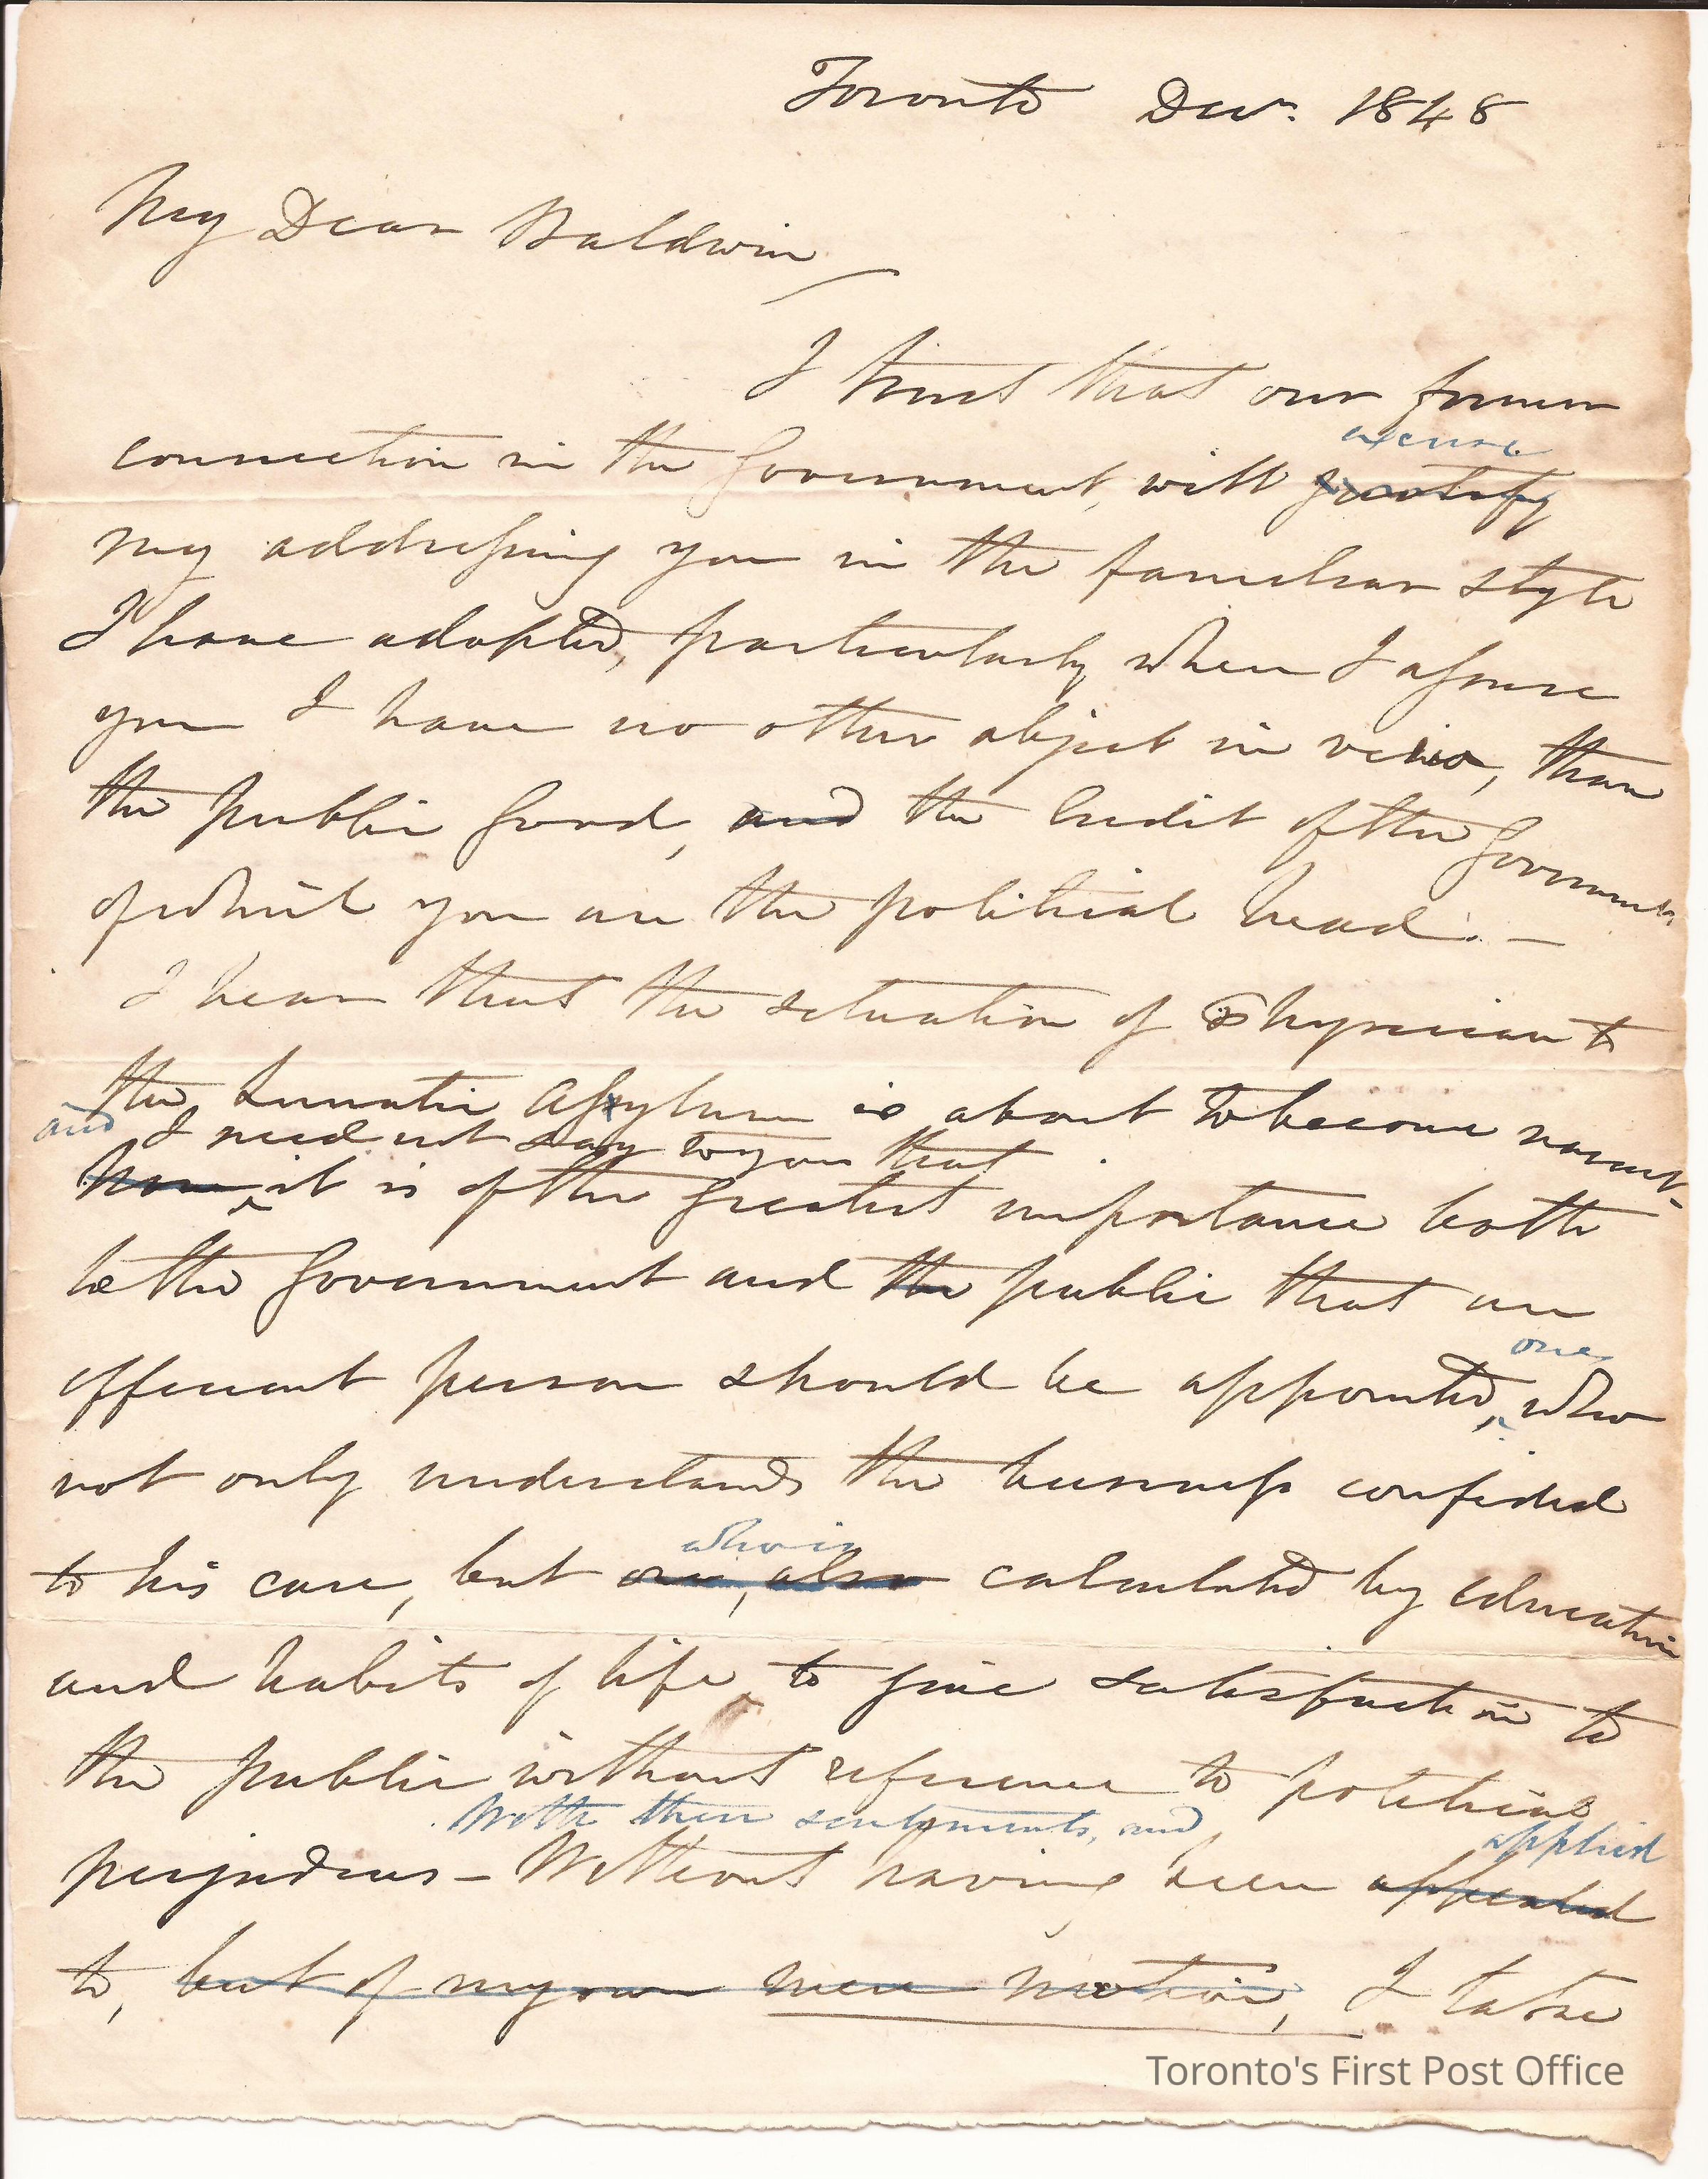 Toronto Decr. 1848
My Dear Baldwin
I trust that our former
excuse
connection in the Government, will justify
my addressing you in the familiar style
I have adopted, particularly when I assure
you I have no other object in veiw, than
the public good, and the credit of the Government
of which you are the political head. –
I hear that the situation of Physician to
the Lunatic Assylum is about to become vacant –
and I need not say to you that
Now it is of the greatest importance both
to the Government and the public that an
one
efficient person should be appointed, who
not only understands the business confided
who is
to his care, but one, also calculated by education
and habits of life, to give satisfaction to
the public without reference to political
With these sentiments, and applied
perjudices – Without having been appealed
to, but of my own mere motion, I take
Toronto's First Post Office